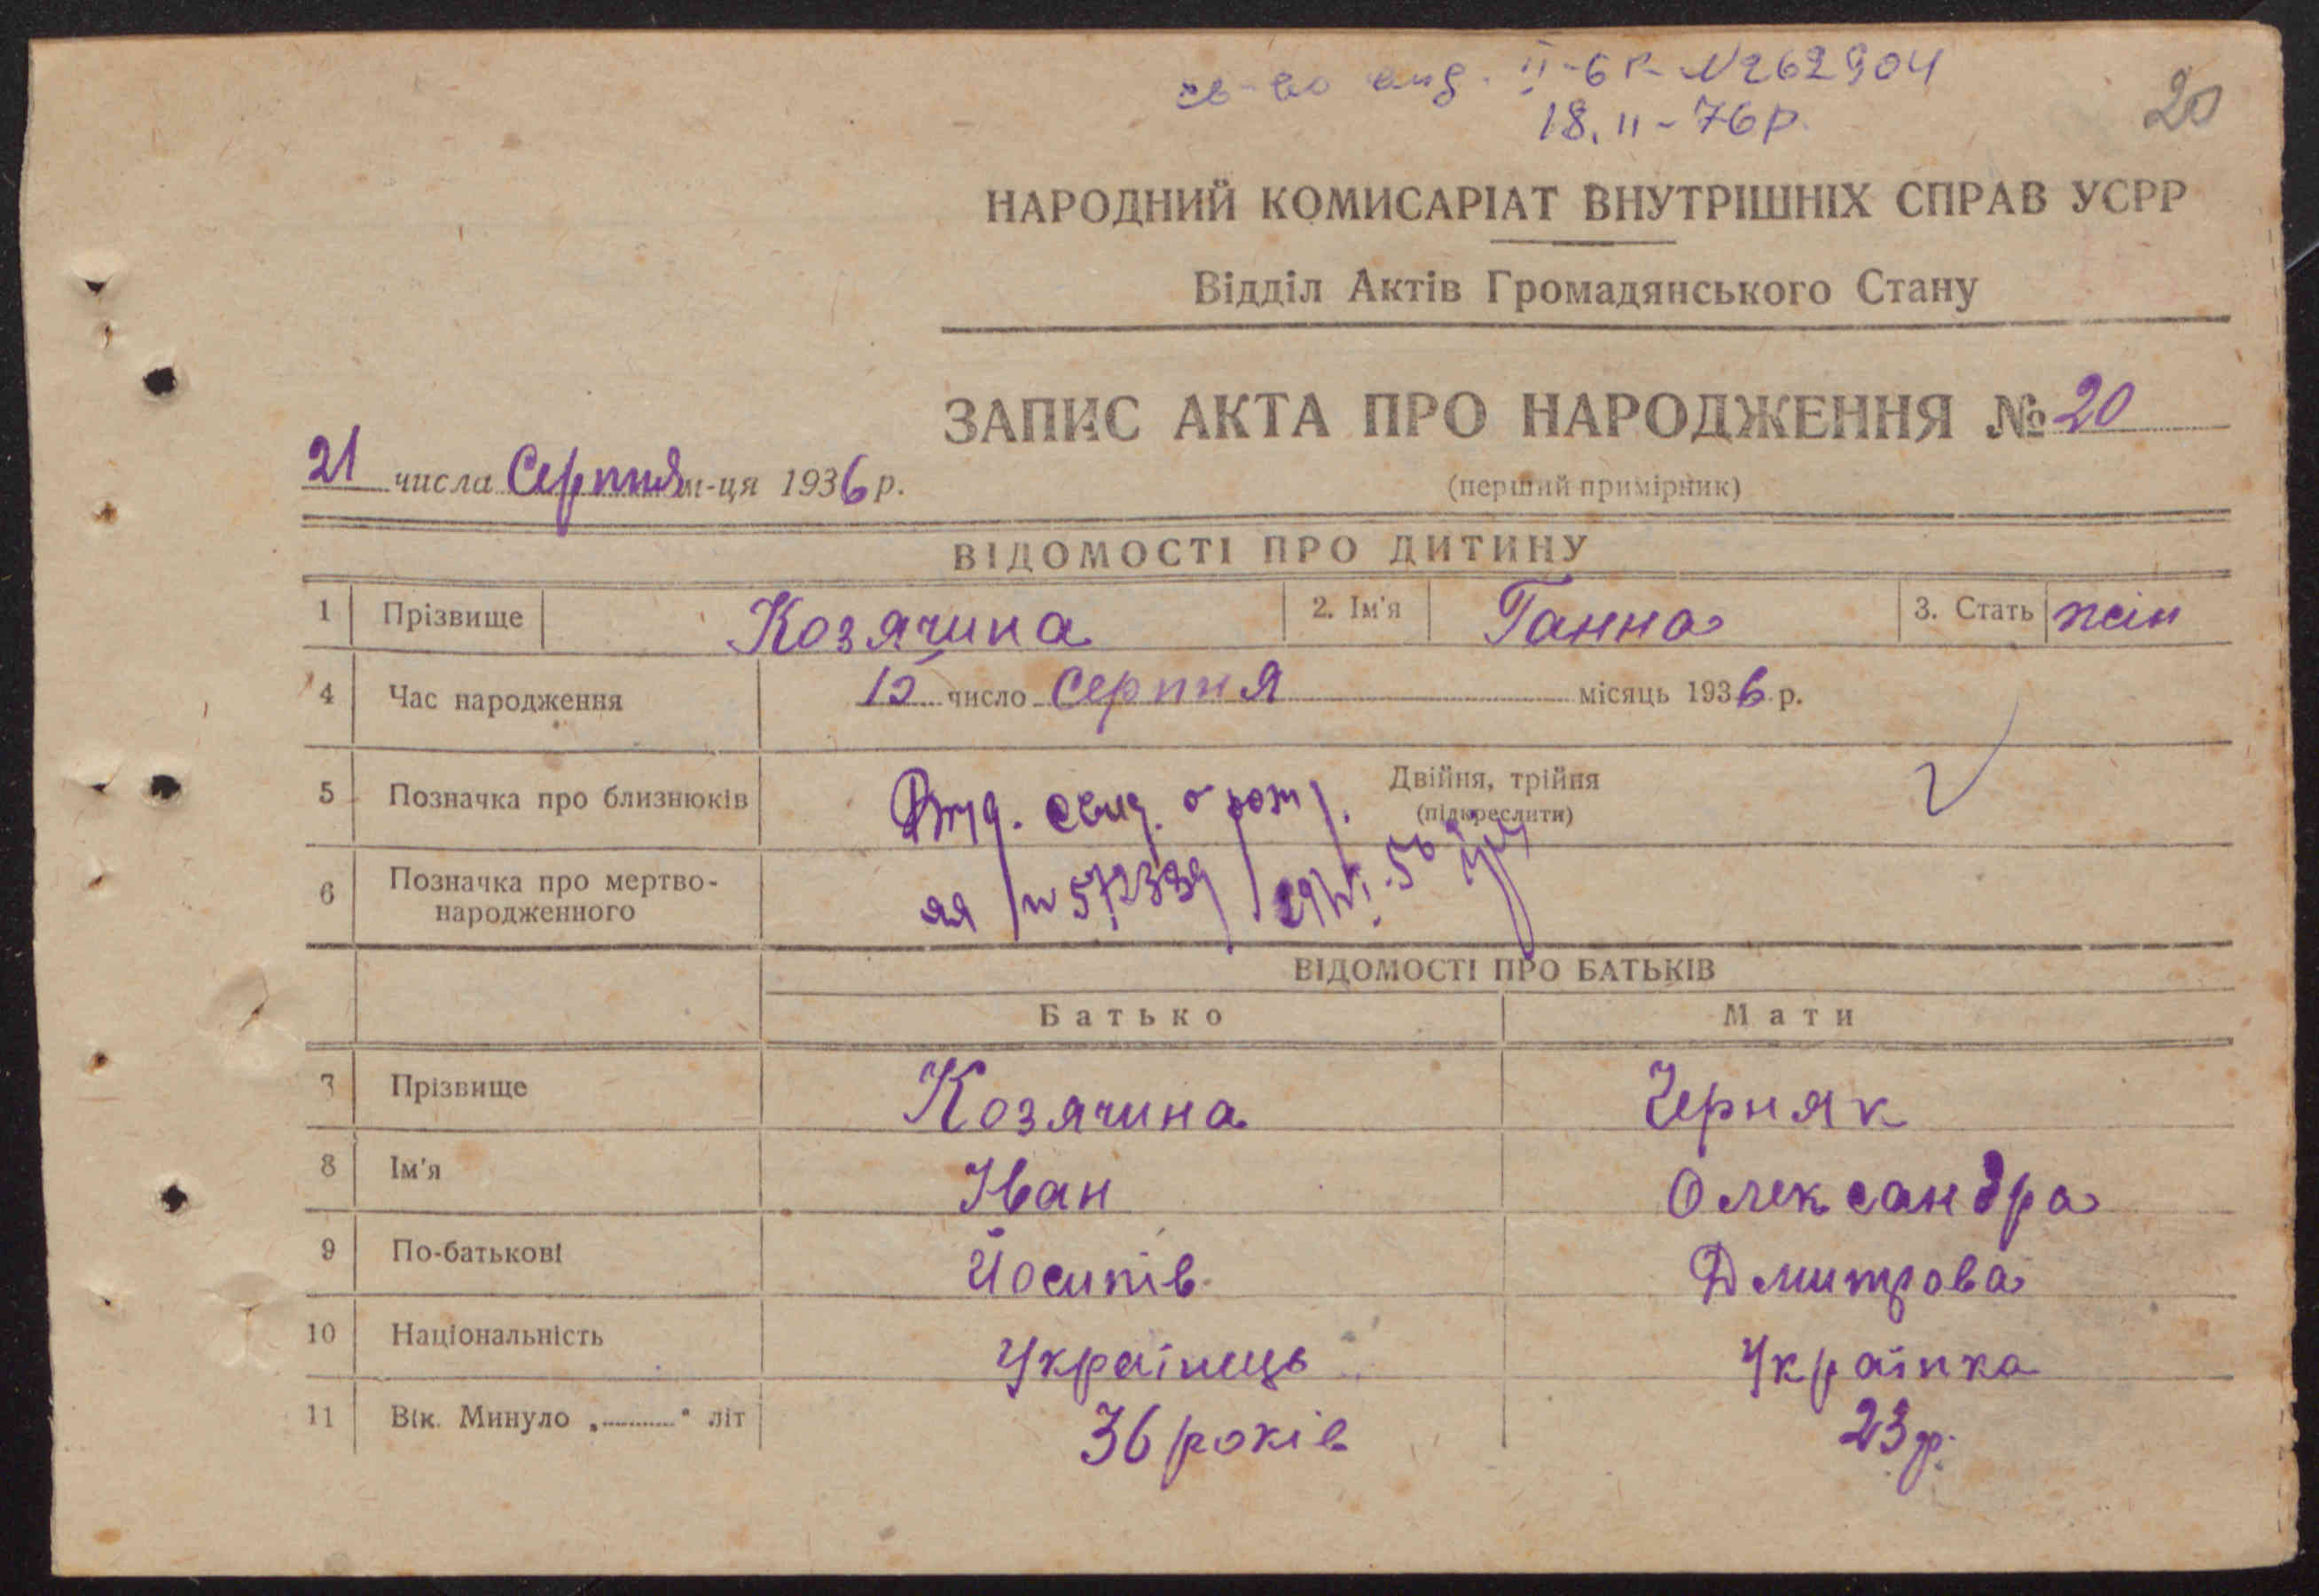 св-во выд. II-БК № 262904
18.II-76р.
20
НАРОДНИЙ КОМИСАРІАТ ВНУТРІШНІХ СПРАВ УСРР
Відділ Актів Громадянського Стану
ЗАПИС АКТА ПРО НАРОДЖЕННЯ № 20
21 числа Серпня м-ця 1936 р.
(перший примірник)
ВІДОМОСТІ ПРО ДИТИНУ
1 Прізвище Козячина 2. Ім'я Ганна 3. Стать жін
4 Час народження 15 число Серпня місяць 1936 р.
5 Позначка про близнюків Двійня, трійня
(підкреслити)
Выд. свид. о рожд.
яя № 572389
6 Позначка про мертво-
народженного
ВІДОМОСТІ ПРО БАТЬКІВ
Батько Мати
7 Прізвище Козячина Черняк
8 Ім'я Іван Олександра
9 По-батькові Йосипів Дмитрова
10 Національність Українець Українка
11 Вік. Минуло „............“ літ 36 років 23 р.